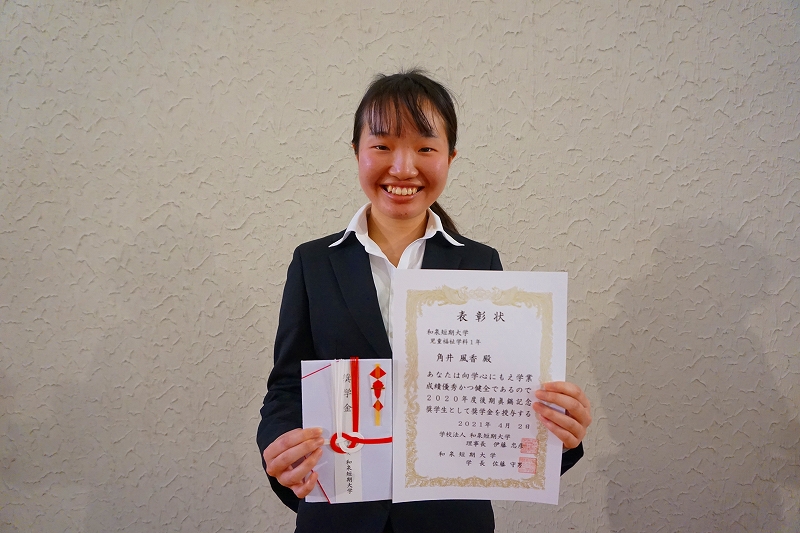 奨学金
和泉短期大学
表彰状
和泉短期大学
児童福祉学科1年
角井 風香 殿
あなたは向学心にもえ学業
成績優秀かつ健全であるので
2020年度後期眞鍋記念
奨学生として奨学金を授与する
2021年 4月 2日
学校法人 和泉短期大学
理事長 伊藤 忠彦
和泉短期大学
学長 佐藤 守男